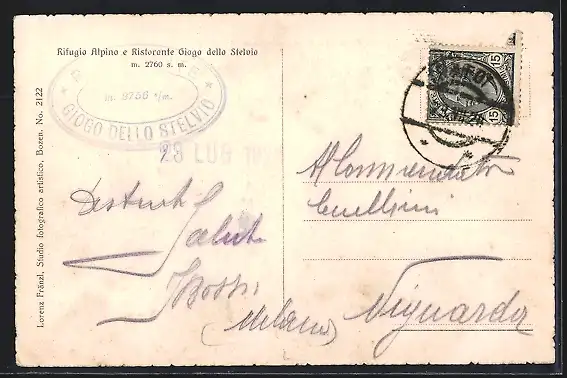 Rifugio Alpino e Ristorante Giogo dello Stelvio
m. 2760 s. m.
m. 2756 s/m.
GIOGO DELLO STELVIO
28 LUG
15 15
Al Commendator
Distinti
Saluti
Bossi
(Milano)
Niguarda
Lorenz Fränzl, Studio fotografico artistico, Bozen. No. 2122